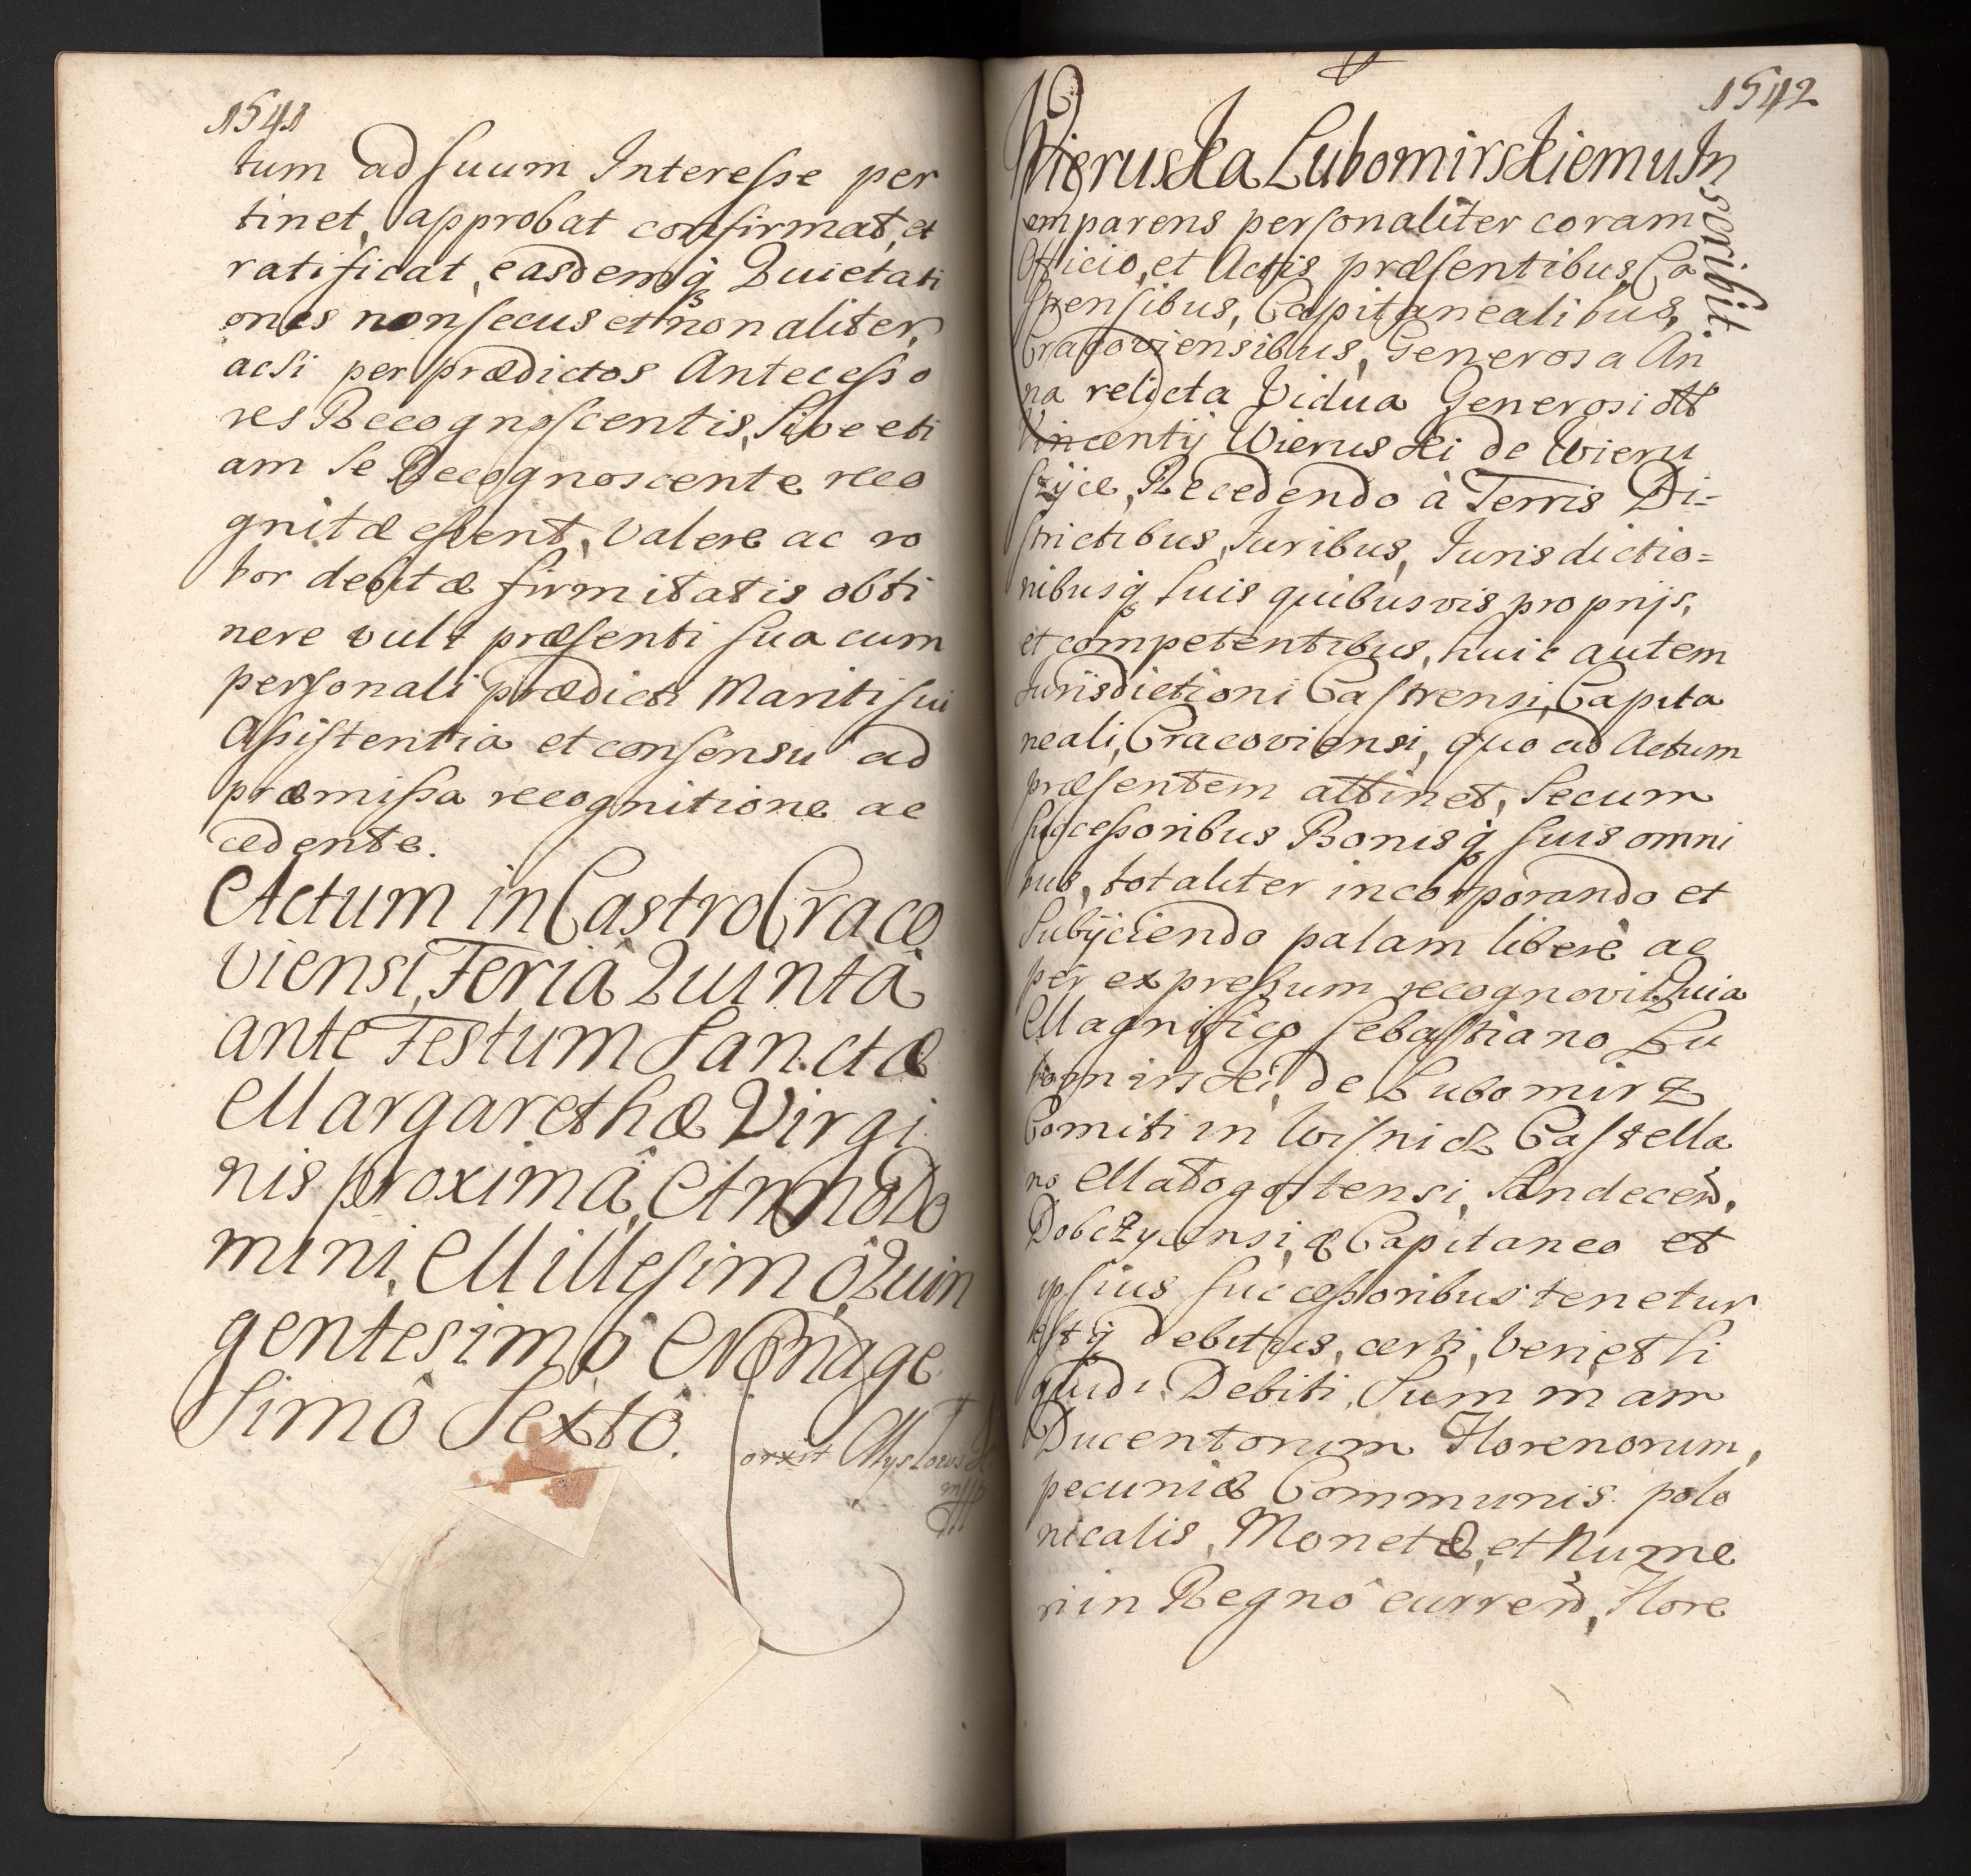 1541
tum ad suum Interesse per
tinet, approbat confirmat, et
ratificat, easdemq Quietati
ones non secus et non aliter,
acsi per prædictos Antecesso
res Recognoscentis, Sive eti
am Se Recognoscente reco
gnitæ essent, Valere ac ro
bor debitæ firmitatis obti
nere vult præsenti sua cum
personali prædicti Mariti sui
Assistentia et consensu ad
præmissa recognitione ac
cedente.
Actum in Castro Craco
viensi, Feriâ Quintâ
ante Festum Sanctæ
Margarethæ Virgi
nis proximâ, Anno Do
mini, Millesimô, Quin
gentesimô Nonage
simô Sextô.
1542
Wieruska Lubomirskiemu In
scribit.
Comparens personaliter coram
Officio, et Actis præsentibus, Ca
strensibus, Capitanealibus,
Cracoviensibus, Generosa An
na relicta Vidua Generosi olf
Vincentij Wieruski de Wieru
szyce, Recedendo à Terris Di-
strictibus, Juribus, Jurisdictio=
nibusq suis quibusvis proprijs,
et competentibus, huic autem
Jurisdictioni Castrensi, Capita
neali, Cracoviensi, quo ad Actum
præsentem attinet, Secum
Successoribus Bonisq suis omni
bus, totaliter incorporando et
Subijciendo palam liberè ac
per expressum recognovit Quia
Magnifico Sebastiano Lu
bomirski, de Lubomirz
Comiti in Wisnicz Castella
no Małogostensi, Sandecen,
Dobczycensi, & Capitaneo et
ipsius successoribus tenetur
estq debitus, certi, Veri, et li
quidi Debiti, Summam
Ducentorum Florenorum,
pecuniæ Communis polo
nicalis, Monetæ, et Nume
ri in Regnô curren, Flore